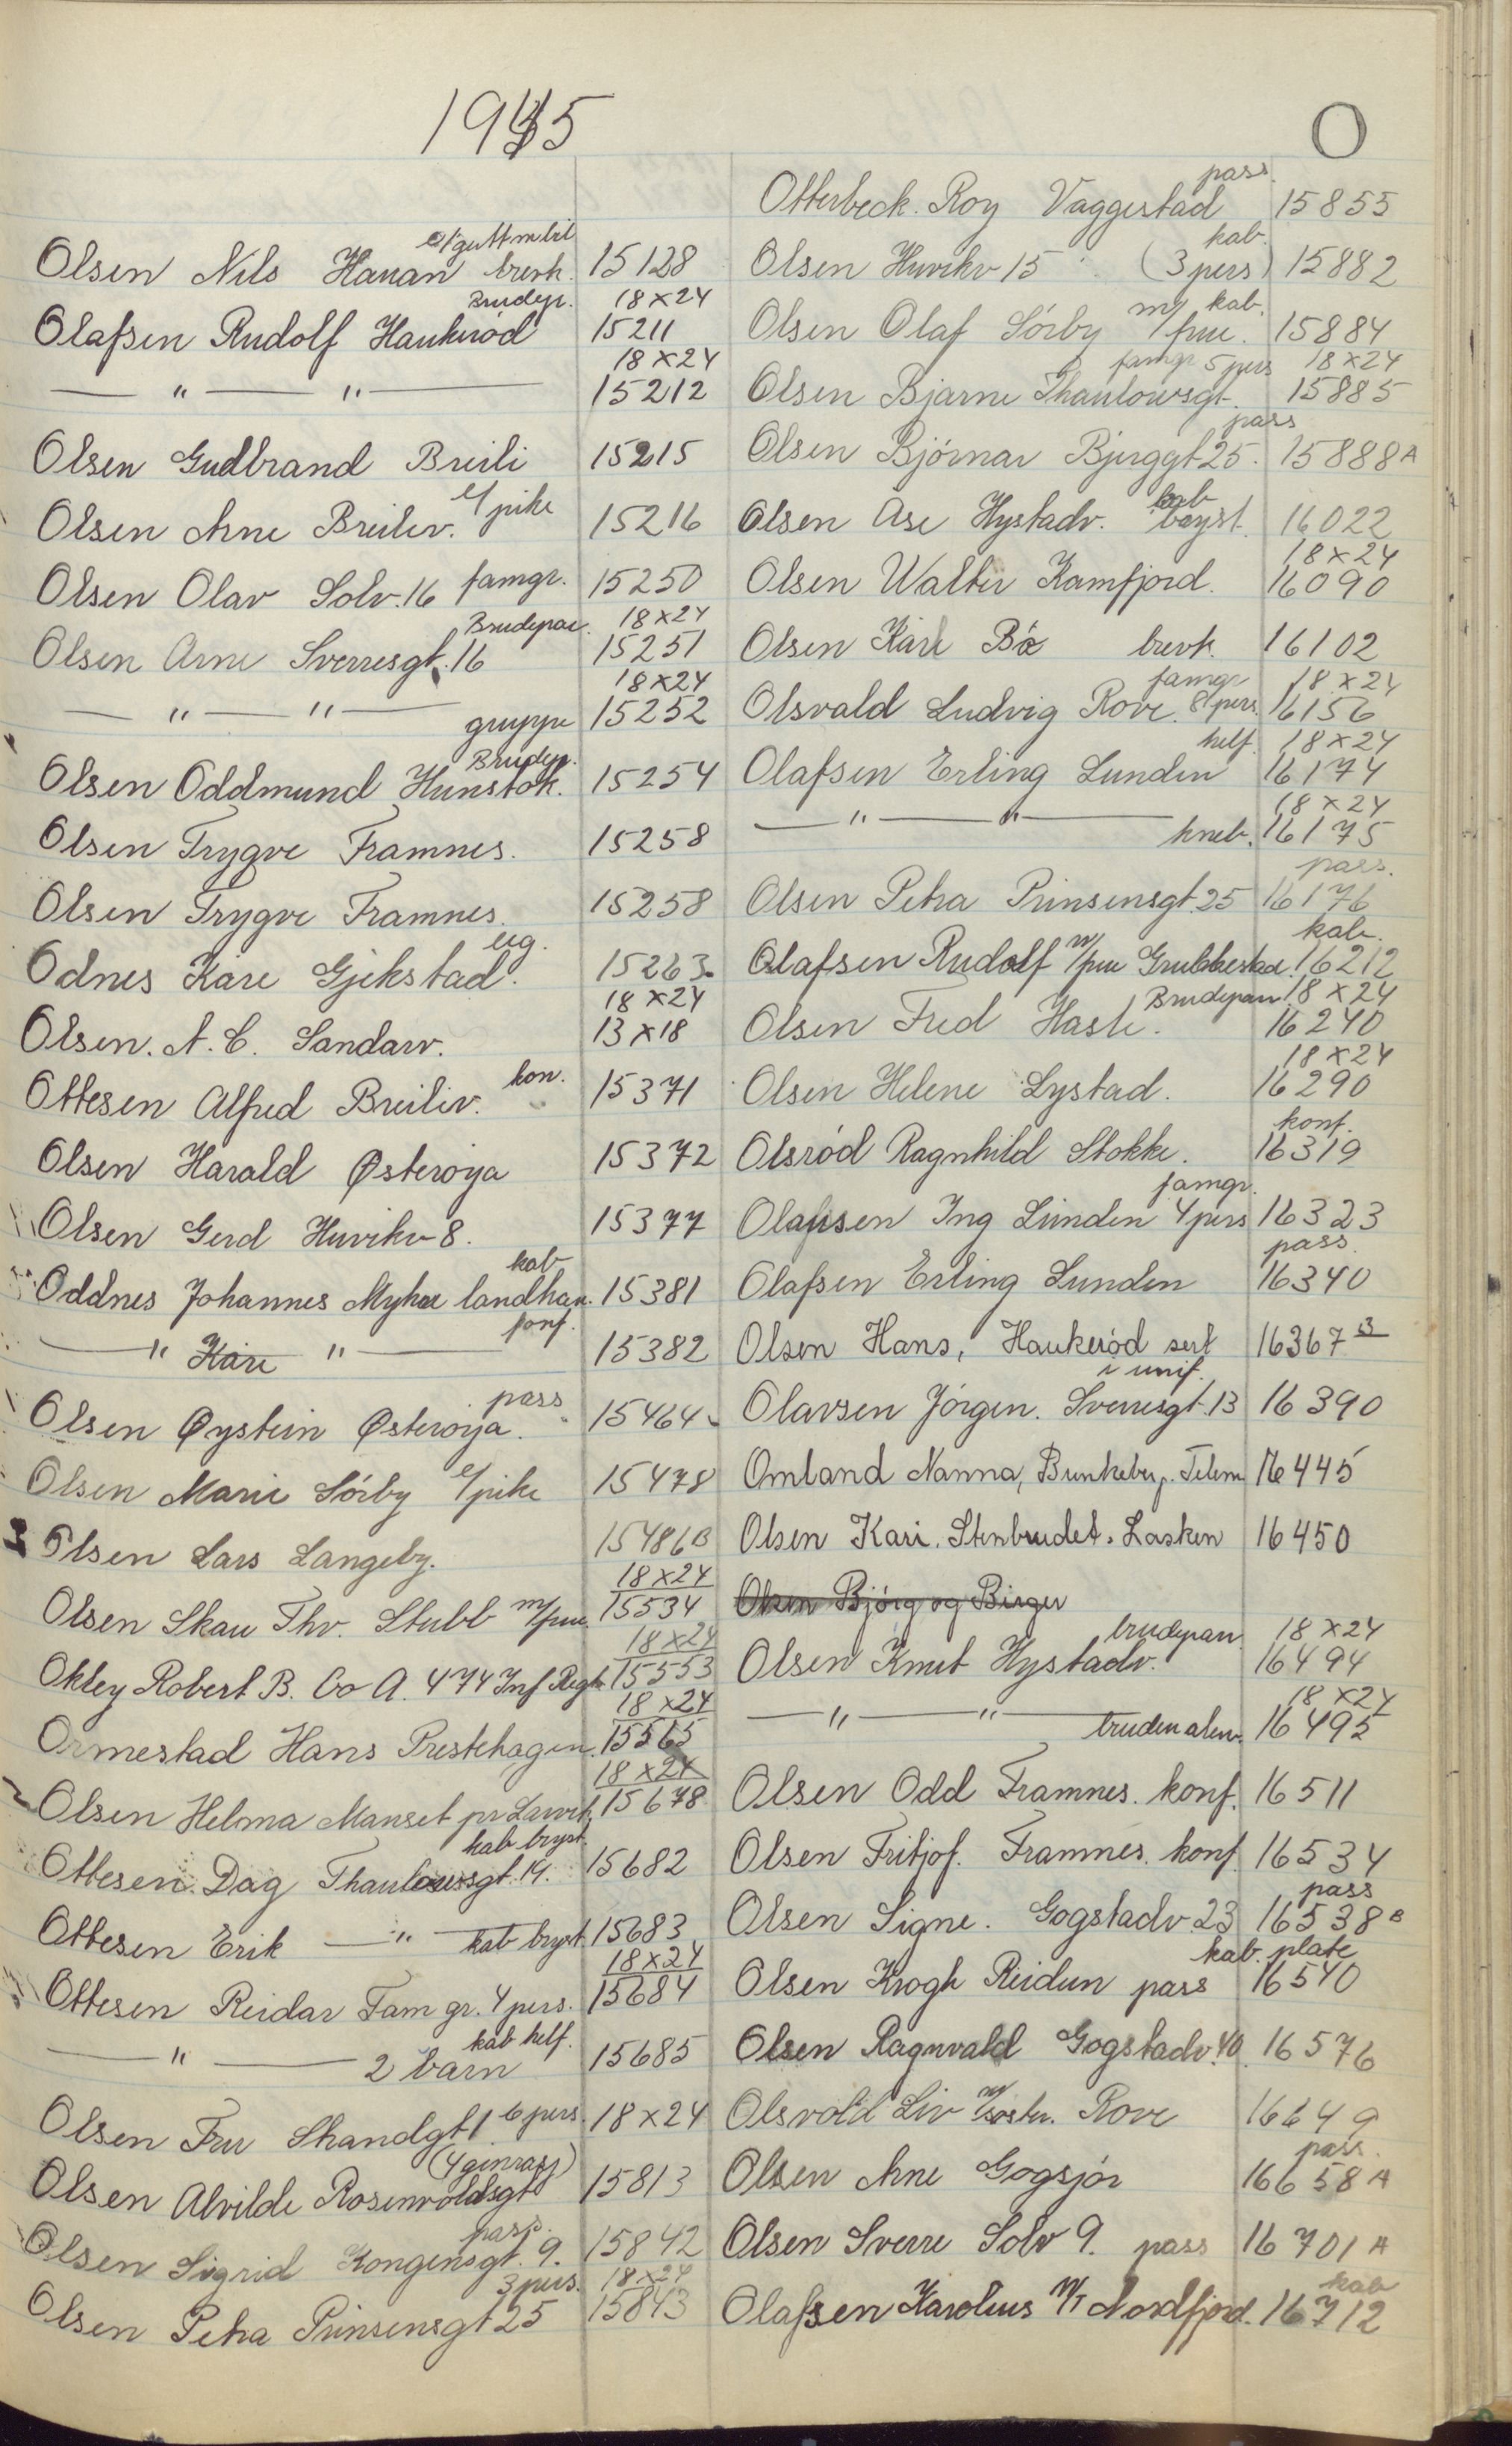 1945
O
Olsen Nils Hauan brevk. e/gutt m bil 15128
Olafsen Rudolf Haukerød Brudep. 18x24 15211
— " — " — 18x24 15212
Olsen Gudbrand Breili 15215
Olsen Arne Breiliv. e/pike 15216
Olsen Olav Solv. 16 famgr. 15250
Olsen Arne Sverresgt. 16 Brudepar. 18x24 15251
— " — " — gruppe 18x24 15252
Olsen Oddmund Hunstok. Brudep. 15254
Olsen Trygve Framnes. 15258
Olsen Trygve Framnes. 15258
Odnes Kåre Gjekstad. leg. 15263
Olsen. A. C. Sandarv. 18x24 13x18
Ottesen Alfred Breiliv. kon. 15371
Olsen Harald Østerøya 15372
Olsen Gerd Huvikv 8. 15377
Oddnes Johannes landhan. kab 15381
— " Kåre " — konf. 15382
Olsen Øystein Østerøya. pass 15464
Olsen Marie Sørby e/pike 15478
Olsen Lars Langeby. 15486B
Olsen Skau Thv. Stubb m/frue 18x24 15534
Okley Robert B. Co A. 474 Inf Regt. 18x24 15553
Ormestad Hans Prestehagen. 18x24 15565
Olsen Helma Manset pr Larvik 18x24 15678
Ottesen. Dag Thaulowsgt. 19. kab bryst. 15682
Ottesen Erik — " — kab bryst 15683
Ottesen Reidar Fam gr. 4 pers. 18x24 15684
— " — 2 barn kab helf. 15685
Olsen Fru Skandgt 1 6 pers. 18x24
Olsen Alvilde Rosenvoldsgt 15813
Olsen Sigrid Kongensgt. 9. pass. 15842
Olsen Petra Prinsensgt 25 3 pers. 18x24 15843
Otterbeck. Roy Vaggestad pass. 15855
Olsen Huvikv 15 (3 pers) kab. 15882
Olsen Olaf Sørby m/frue. kab. 15884
Olsen Bjarne Thaulowsgt. famgr 5 pers 18x24 15885
Olsen Bjørnar Bjerggt 25. pass 15888A
Olsen Åse Hystadv. kab bryst. 16022
Olsen Walter Kamfjord. 18x24 16090
Olsen Kåre Bø brevk. 16102
Olsvald Ludvig Rove. famgr 8 pers. 18x24 16156
Olafsen Erling Lunden helf. 18x24 16174
— " — " — kneb. 18x24 16175
Olsen Petra Prinsensgt. 25 pass. 16176
Olafsen Rudolf m/frue Grubbestad. kab. 16212
Olsen Fred Hasle. Brudepar 18x24 16240
Olsen Helene Lystad. 18x24 16290
Olsrød Ragnhild Stokke. konf. 16319
Olausen Ing Lunden famgr. 4 pers 16323
Olafsen Erling Lunden pass. 16340
Olsen Hans, Haukerød sert 16367 B
Olavsen Jørgen. Sverresgt. 13 i unif. 16390
Omland Nanna, Bunkeberg. Telem 16445
Olsen Kari. Stenbrudet. Lasken 16450
Olsen Bjørg og Birger
Olsen Knut Hystadv. brudepar. 18x24 16494
— " — " — bruden alene 18x24 16495
Olsen Odd Framnes. konf. 16511
Olsen Fritjof. Framnes. konf. 16534
Olsen Signe. Gogstadv 23 pass 16538 B
Olsen Krogh Reidun pass kab. plate 16540
Olsen Ragnvald Gogstadv. 40 16576
Olsvold Liv m/søster. Rove 16649
Olsen Arne Gogsjør pass. 16658 A
Olsen Sverre Solv 9. pass 16701 A
Olafsen Karolius M/T Nordfjord. kab 16712